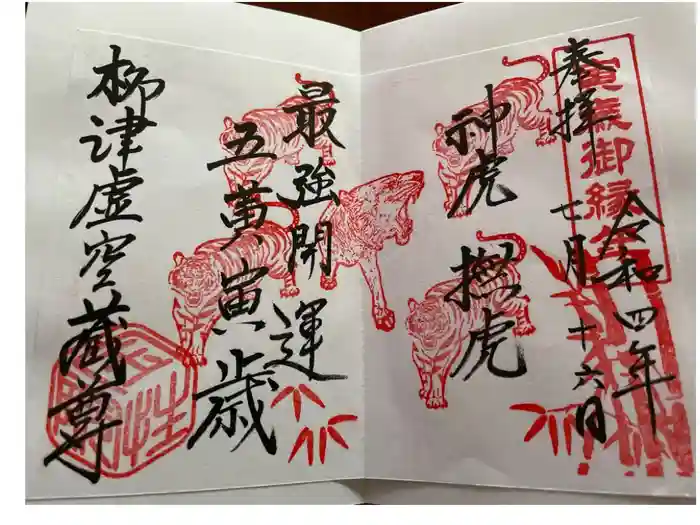 奉拝
寅歳御縁年
令和四年
七月十六日
神虎
撫虎
最強開運
五黄寅歳
柳津虚空蔵尊